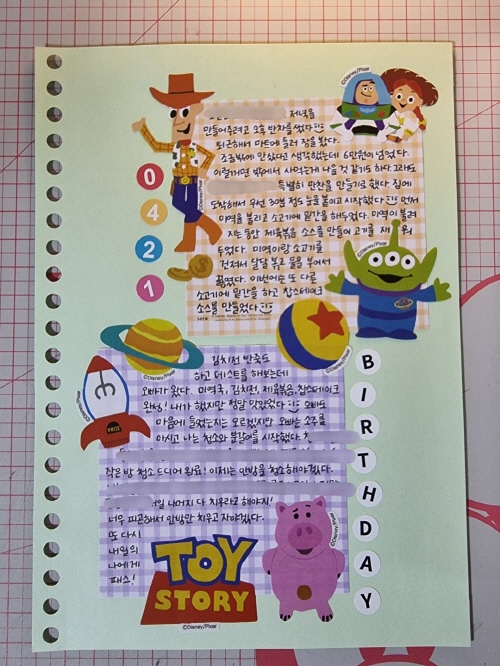 저녁을
만들어주려고 오후 반차를 썼다
퇴근해서 마트에 들러 장을 봤다.
조금밖에 안샀다고 생각했는데 6만원이 넘었다.
이럴꺼면 밖에서 사먹는게 나을 것 같기도 하다 그래도
특별히 만찬을 만들기로 했다 집에
도착해서 우선 30분 정도 눈을 붙이고 시작했다 먼저
미역을 불리고 소고기에 밑간을 해두었다. 미역이 불려
지는 동안 제육볶음 소스를 만들어 고기를 재
두었다. 미역이랑 소고기를
건져서 달달 볶고 물을 부어서
끓였다. 이번에는 또 다른
소고기에 밑간을 하고 찹스테이크
소스를 만들었다
0
4
2
1
©Disney/Pixar
©Disney/Pixar
©Disney/Pixar
©Disney/Pixar
김치전 반죽도
하고 테스트를 해보는데
오빠가 왔다. 미역국, 김치전, 제육볶음, 찹스테이크
완성! 내가 했지만 정말 맛있었다 오빠도
마음에 들었는지는 모르겠지만 오빠는 소주를
마시고 나는 청소와 물갈이를 시작했다.
작은 방 청소 드디어 완료! 이제는 안방을 청소해야겠다.
일 나머지 다 치우라고 해야지!
너무 피곤해서 안방만 치우고 자야겠다.
또 다시
내일의
나에게
패스!
TOY
STORY
©Disney/Pixar
B
I
R
T
H
D
A
Y